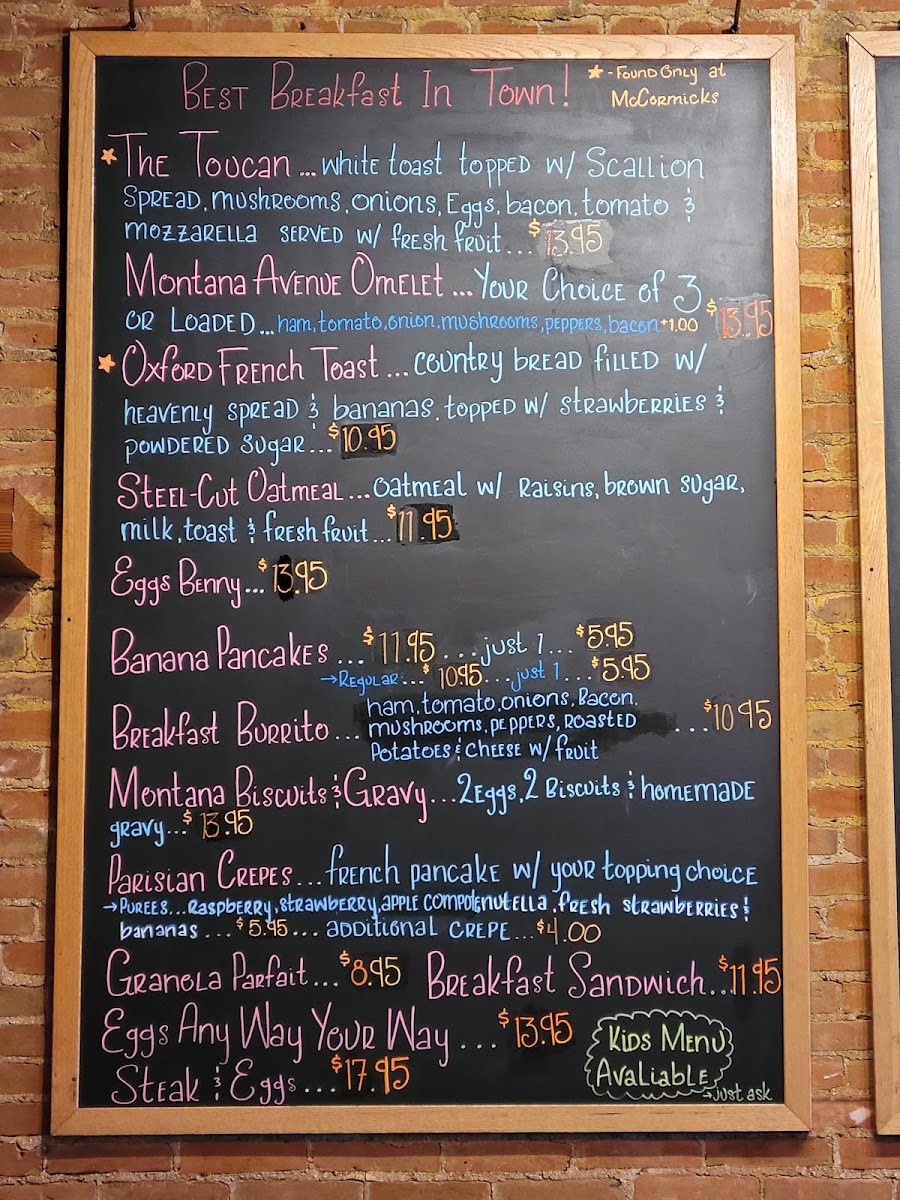 Best Breakfast In Town!
★ - Found Only at
McCormicks
★ The Toucan ... white toast topped w/ Scallion
spread, mushrooms, onions, Eggs, bacon, tomato &
mozzarella served w/ fresh fruit ... $13.95
Montana Avenue Omelet ... Your Choice of 3
or Loaded ... ham, tomato, onion, mushrooms, peppers, bacon +1.00 $13.95
★ Oxford French Toast ... country bread filled w/
heavenly spread & bananas, topped w/ strawberries &
powdered sugar ... $10.95
Steel-Cut Oatmeal ... Oatmeal w/ Raisins, brown sugar,
milk, toast & fresh fruit ... $11.95
Eggs Benny ... $13.95
Banana Pancakes ... $11.95 ... just 1 ... $5.95
→ Regular ... $10.95 ... just 1 ... $5.95
Breakfast Burrito ... ham, tomato, onions, Bacon,
mushrooms, peppers, roasted ... $10.95
Potatoes & cheese w/ fruit
Montana Biscuits & Gravy ... 2 Eggs, 2 Biscuits & homemade
gravy ... $13.95
Parisian Crepes ... french pancake w/ your topping choice
→ Purees ... Raspberry, strawberry, apple compote, nutella, fresh strawberries &
bananas ... $5.95 ... additional crepe ... $4.00
Granola Parfait ... $8.95 Breakfast Sandwich .. $11.95
Eggs Any Way Your Way ... $13.95
Steak & Eggs ... $17.95
Kids Menu
Avaliable
→ just ask